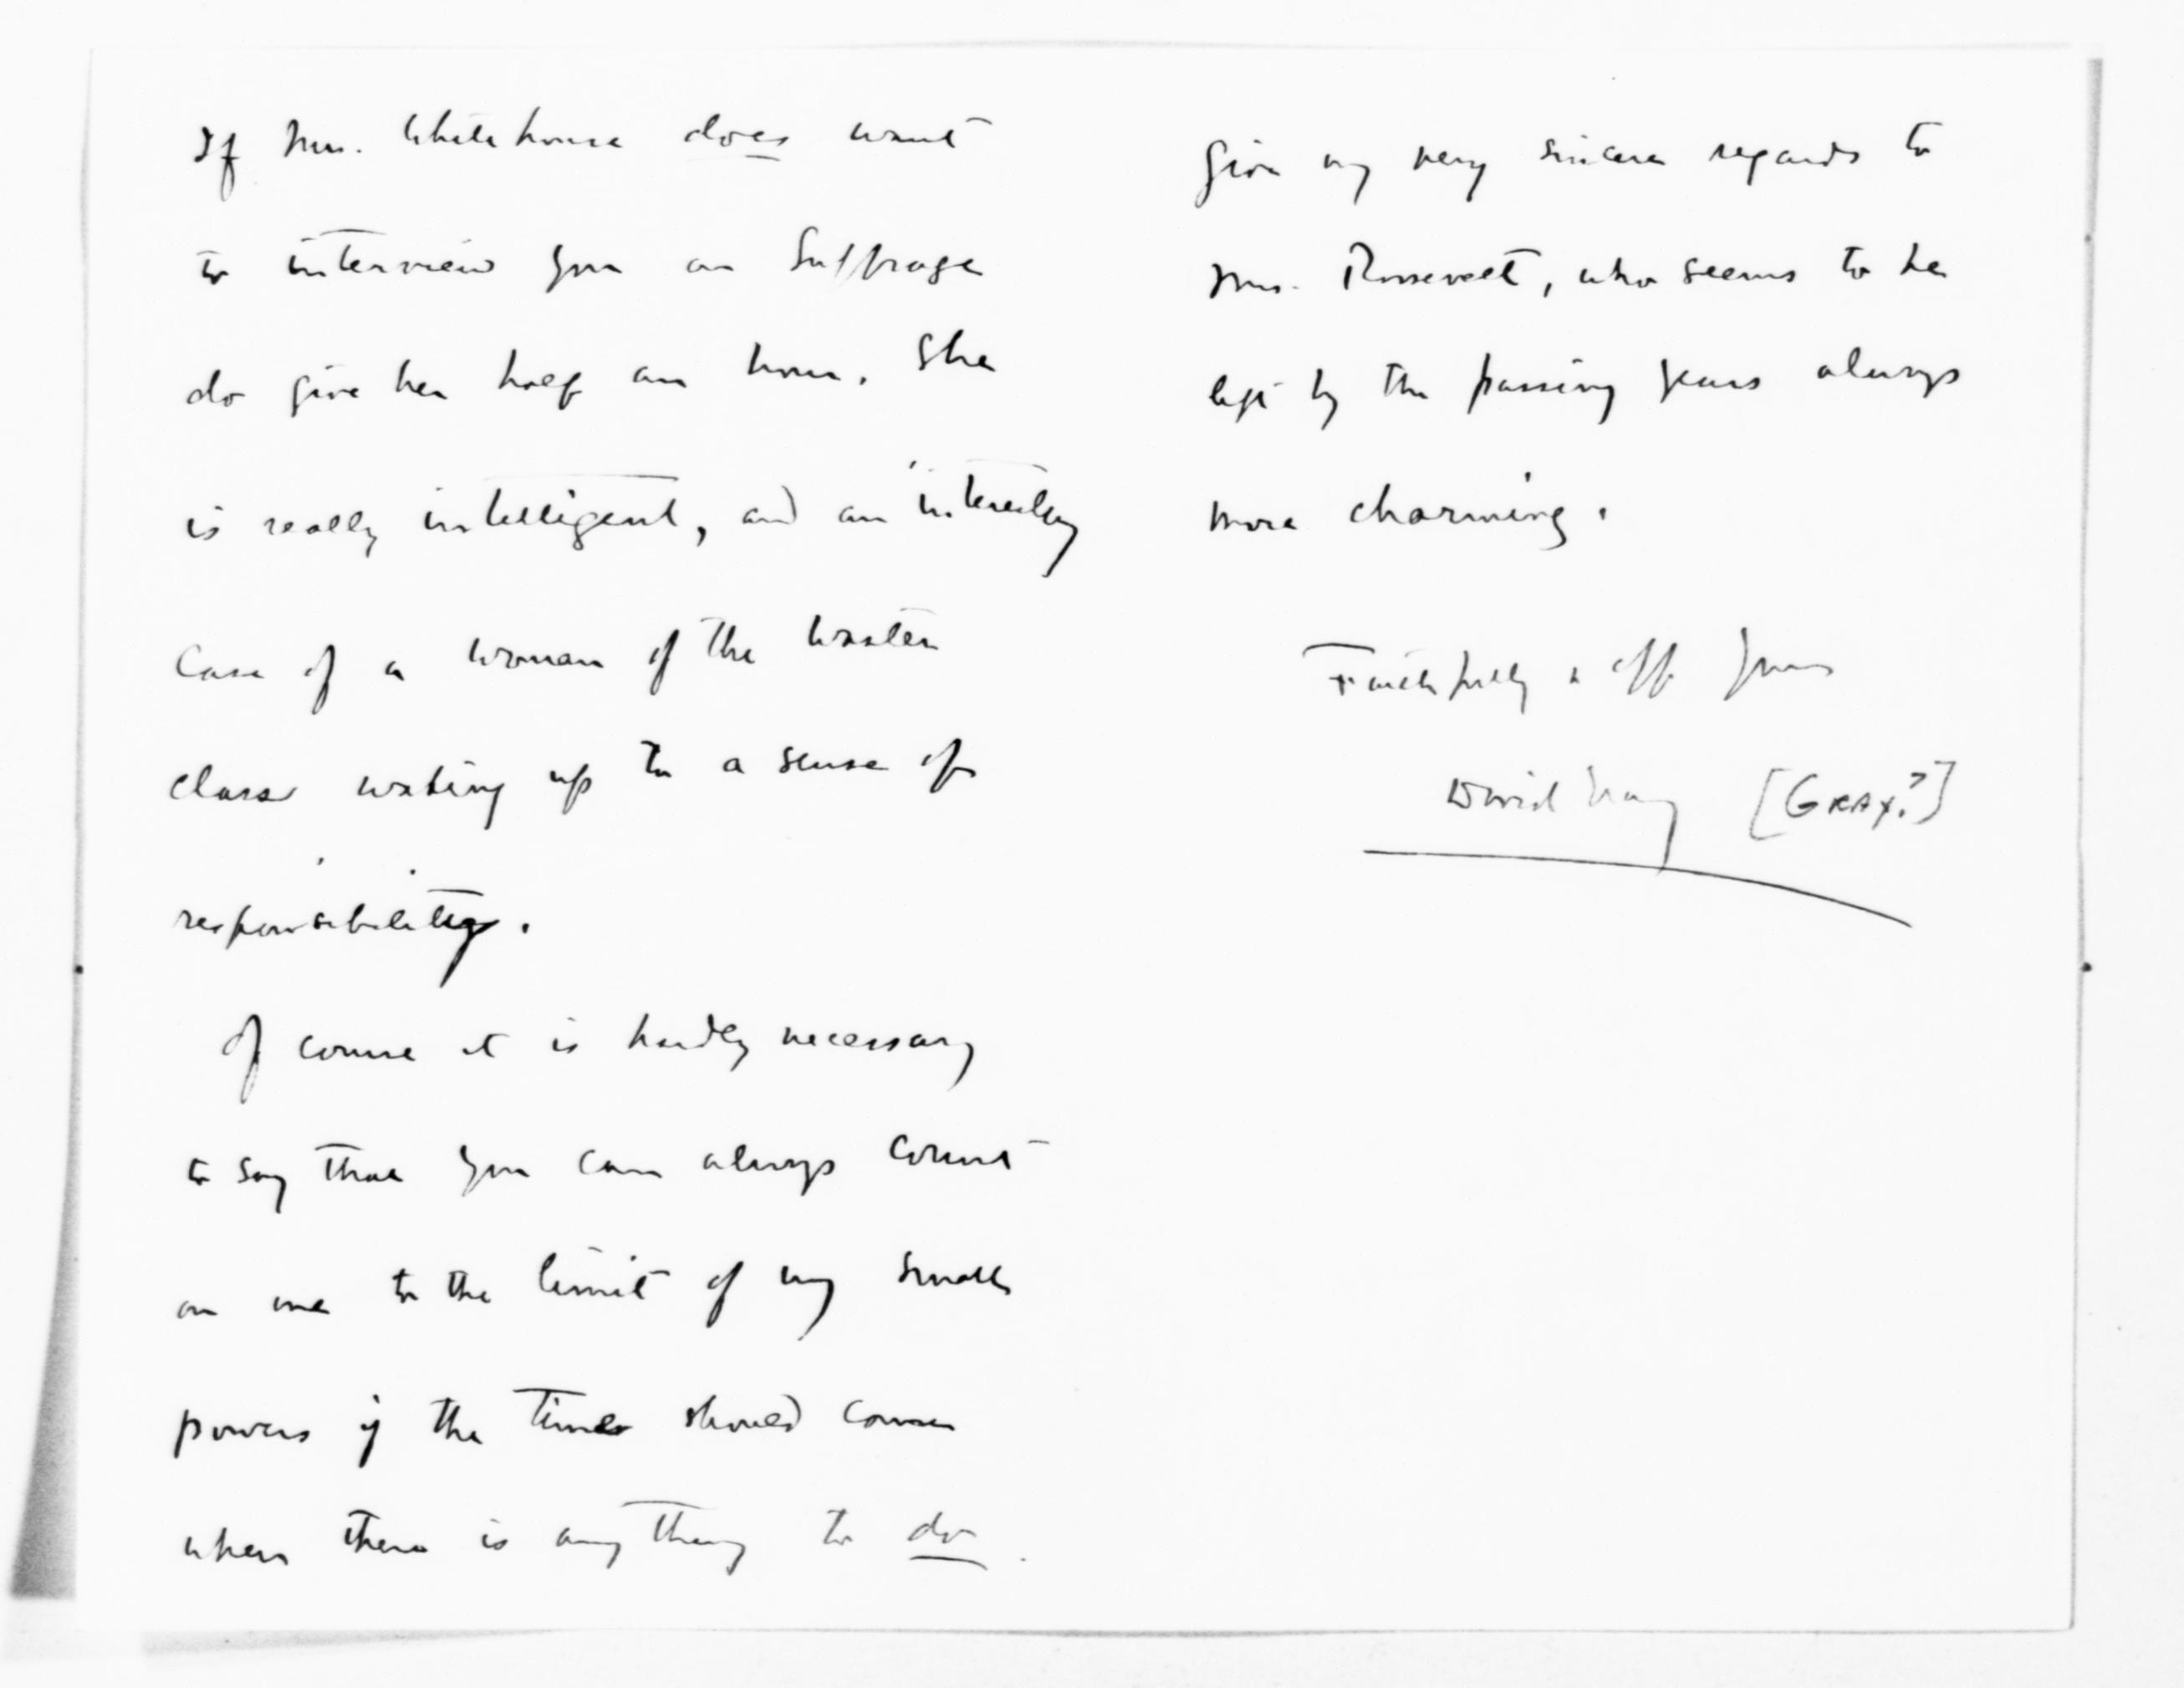 If Mrs. Whitehouse does want
to interview you on Suffrage
do give her half an hour. She
is really intelligent, and an interesting
case of a woman of the wasten
class waking up to a sense of
responsibility.
Of course it is hardly necessary
to say that you can always count
on me to the limit of my small
powers if the time should come
when there is any thing to do.
Give my very sincere regards to
Mrs. Roosevelt, who seems to be
left by the passing years always
more charming.
Faithfully & aff yours
David Gray [GRAY?]